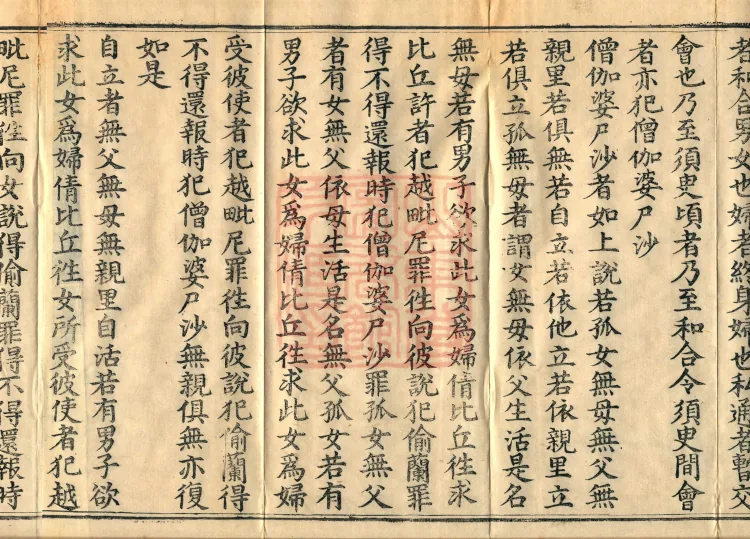 者和合男女也婦者終身婦也私通者暫交
會也乃至須臾頃者乃至和合令須臾間會
者亦犯僧伽婆尸沙
僧伽婆尸沙者如上說若孤女無母無父無
親里若俱無若自立若依他立若依親里立
若俱立孤無母者謂女無母依父生活是名
無母若有男子欲求此女爲婦倩比丘徃求
比丘許者犯越毗尼罪徃向彼說犯偷蘭罪
得不得還報時犯僧伽婆尸沙罪孤女無父
者有女無父依母生活是名無父孤女若有
男子欲求此女爲婦倩比丘徃求此女爲婦
受彼使者犯越毗尼罪徃向彼說犯偷蘭得
不得還報時犯僧伽婆尸沙無親俱無亦復
如是
自立者無父無母無親里自活若有男子欲
求此女爲婦倩比丘徃女所受彼使者犯越
毗尼罪徃向女說得偷蘭罪得不得還報時